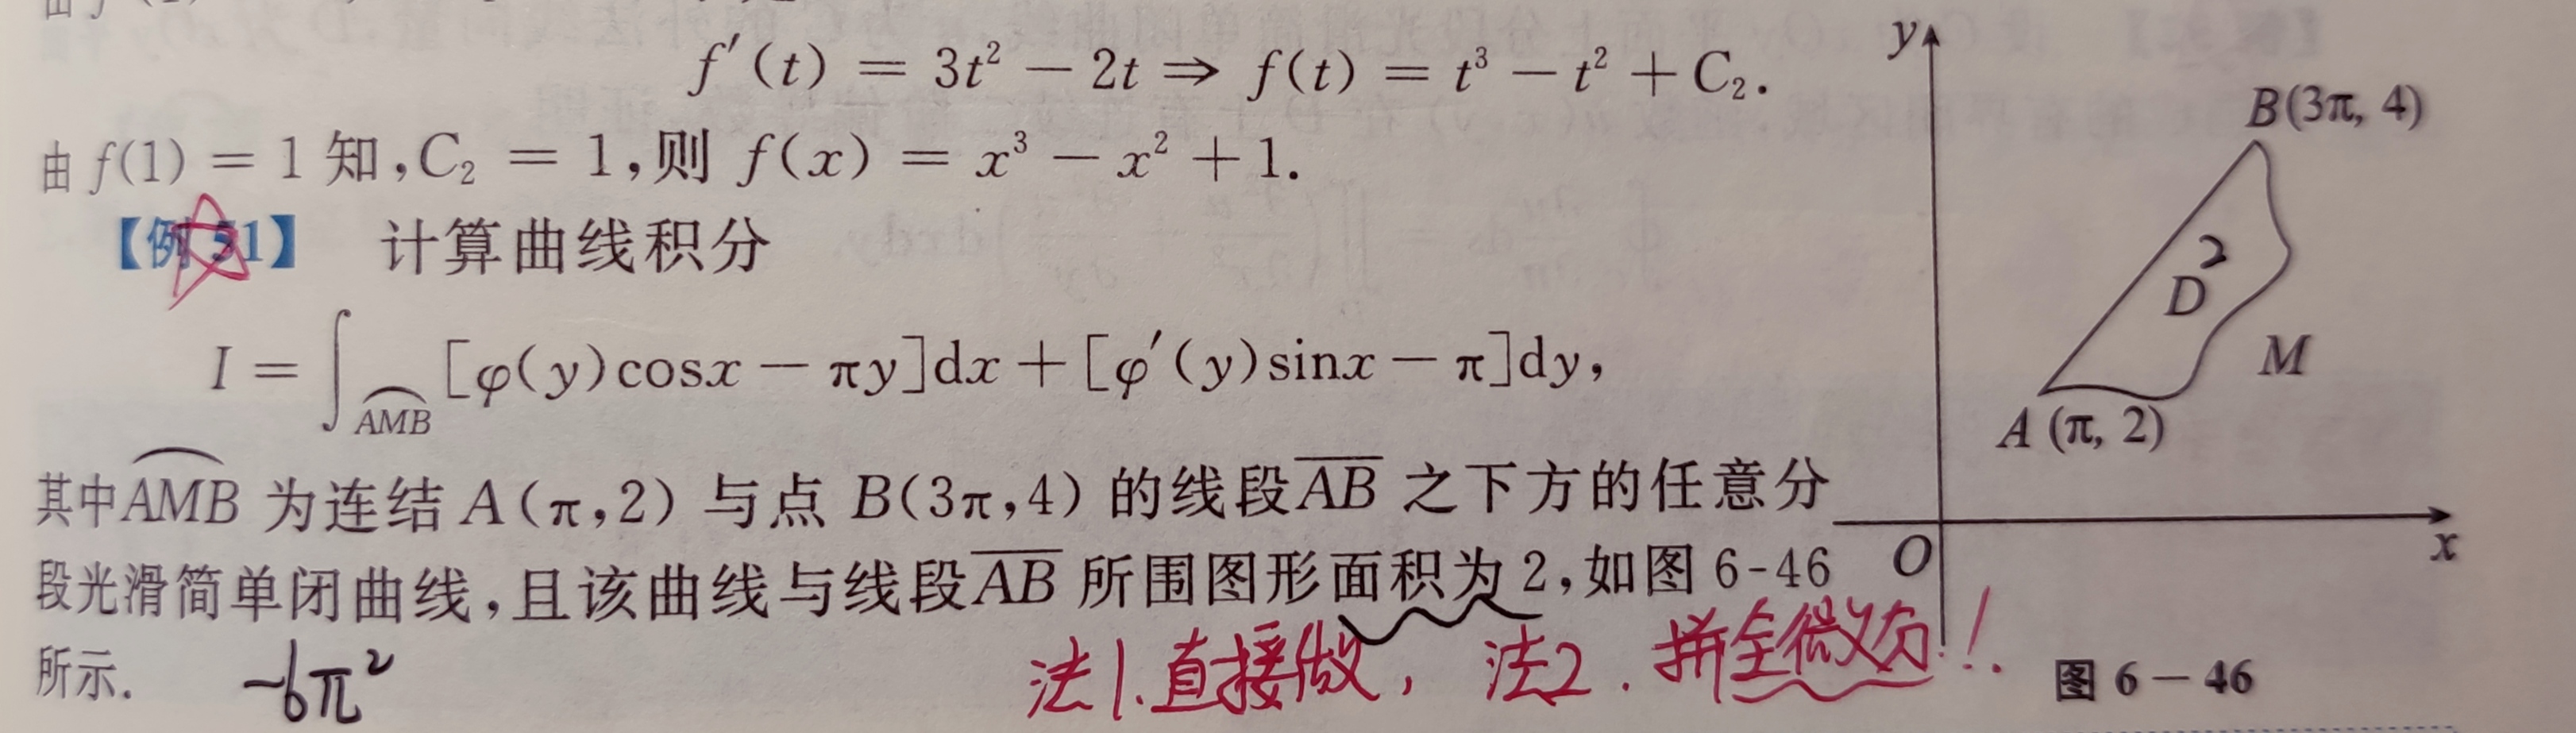 f′(t) = 3t² − 2t ⇒ f(t) = t³ − t² + C₂.
由 f(1) = 1 知,C₂ = 1,则 f(x) = x³ − x² + 1.
【例51】 计算曲线积分
I = ∫_{\overset{\frown}{AMB}} [φ(y)cosx − πy]dx + [φ′(y)sinx − π]dy,
其中\overset{\frown}{AMB} 为连结 A(π,2) 与点 B(3π,4) 的线段\overline{AB} 之下方的任意分
段光滑简单闭曲线,且该曲线与线段\overline{AB} 所围图形面积为 2,如图 6-46
所示.
−6π²
法1.直接做, 法2.拼全微分!.
y
B(3π, 4)
2
D
M
A (π, 2)
O
x
图 6-46